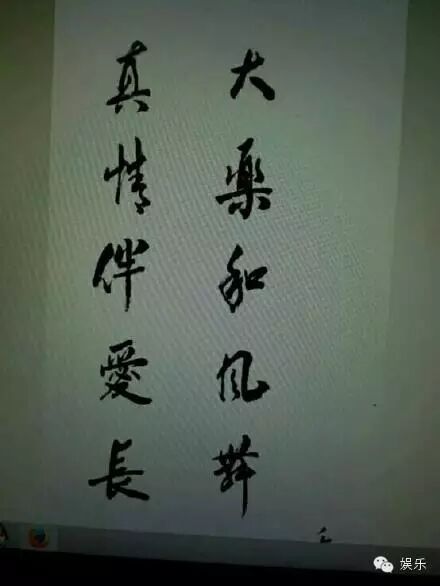 大樂和風舞
真情伴愛長
娱乐